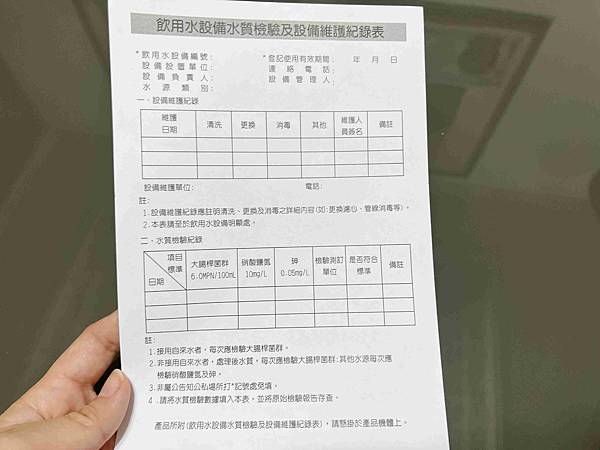 飲用水設備水質檢驗及設備維護紀錄表
*飲用水設備編號： *登記使用有效期間： 年 月 日
設備設置單位： 連絡電話：
設備負責人： 設備管理人：
水源類別：
一、設備維護紀錄
維護日期 清洗 更換 消毒 其他 維護人員簽名 備註
設備維護單位： 電話：
註：
1.設備維護紀錄應註明清洗、更換及消毒之詳細內容(如:更換濾心、管線消毒等)。
2.本表請至於飲用水設備明顯處。
二、水質檢驗紀錄
項目 標準 日期 大腸桿菌群 6.0MPN/100mL 硝酸鹽氮 10mg/L 砷 0.05mg/L 檢驗測訂單位 是否符合標準 備註
註：
1.接用自來水者，每次應檢驗大腸桿菌群。
2.非接用自來水者，處理後水質，每次應檢驗大腸桿菌群:其他水源每次應
檢驗硝酸鹽氮及砷。
3.非屬公告知公私場所打*記號處免填。
4.請將水質檢驗數據填入本表，並將原始檢驗報告存查。
產品所附(飲用水設備水質檢驗及設備維護紀錄表)，請懸掛於產品機體上。